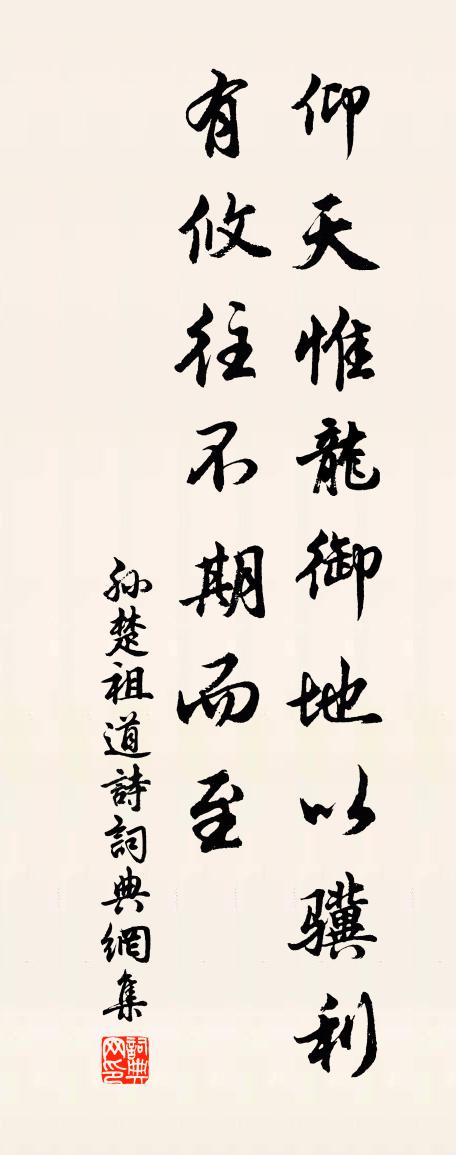 仰天惟龍御地以驥利
有攸往不期而至
孙楚祖道詩詞典網集
詞典网印